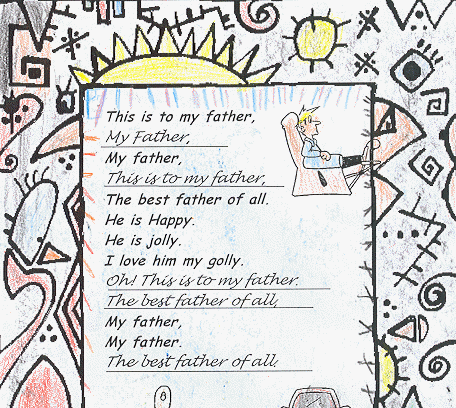 This is to my father,
My Father,
My father,
This is to my father,
The best father of all.
He is Happy.
He is jolly.
I love him my golly.
Oh! This is to my father.
The best father of all,
My father,
My father.
The best father of all.